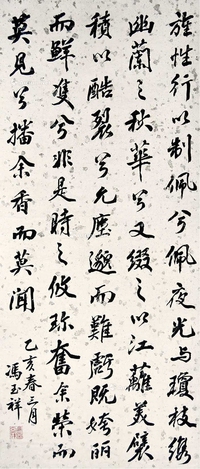 旌性行以制佩兮佩夜光与瓊枝纗
幽蘭之秋華兮又綴之以江蘺美襞
積以酷裂兮允塵邈而難虧既姱麗
而鮮雙兮非是時之攸珍奮余榮而
莫見兮播余香而莫聞
乙亥春三月
馮玉祥